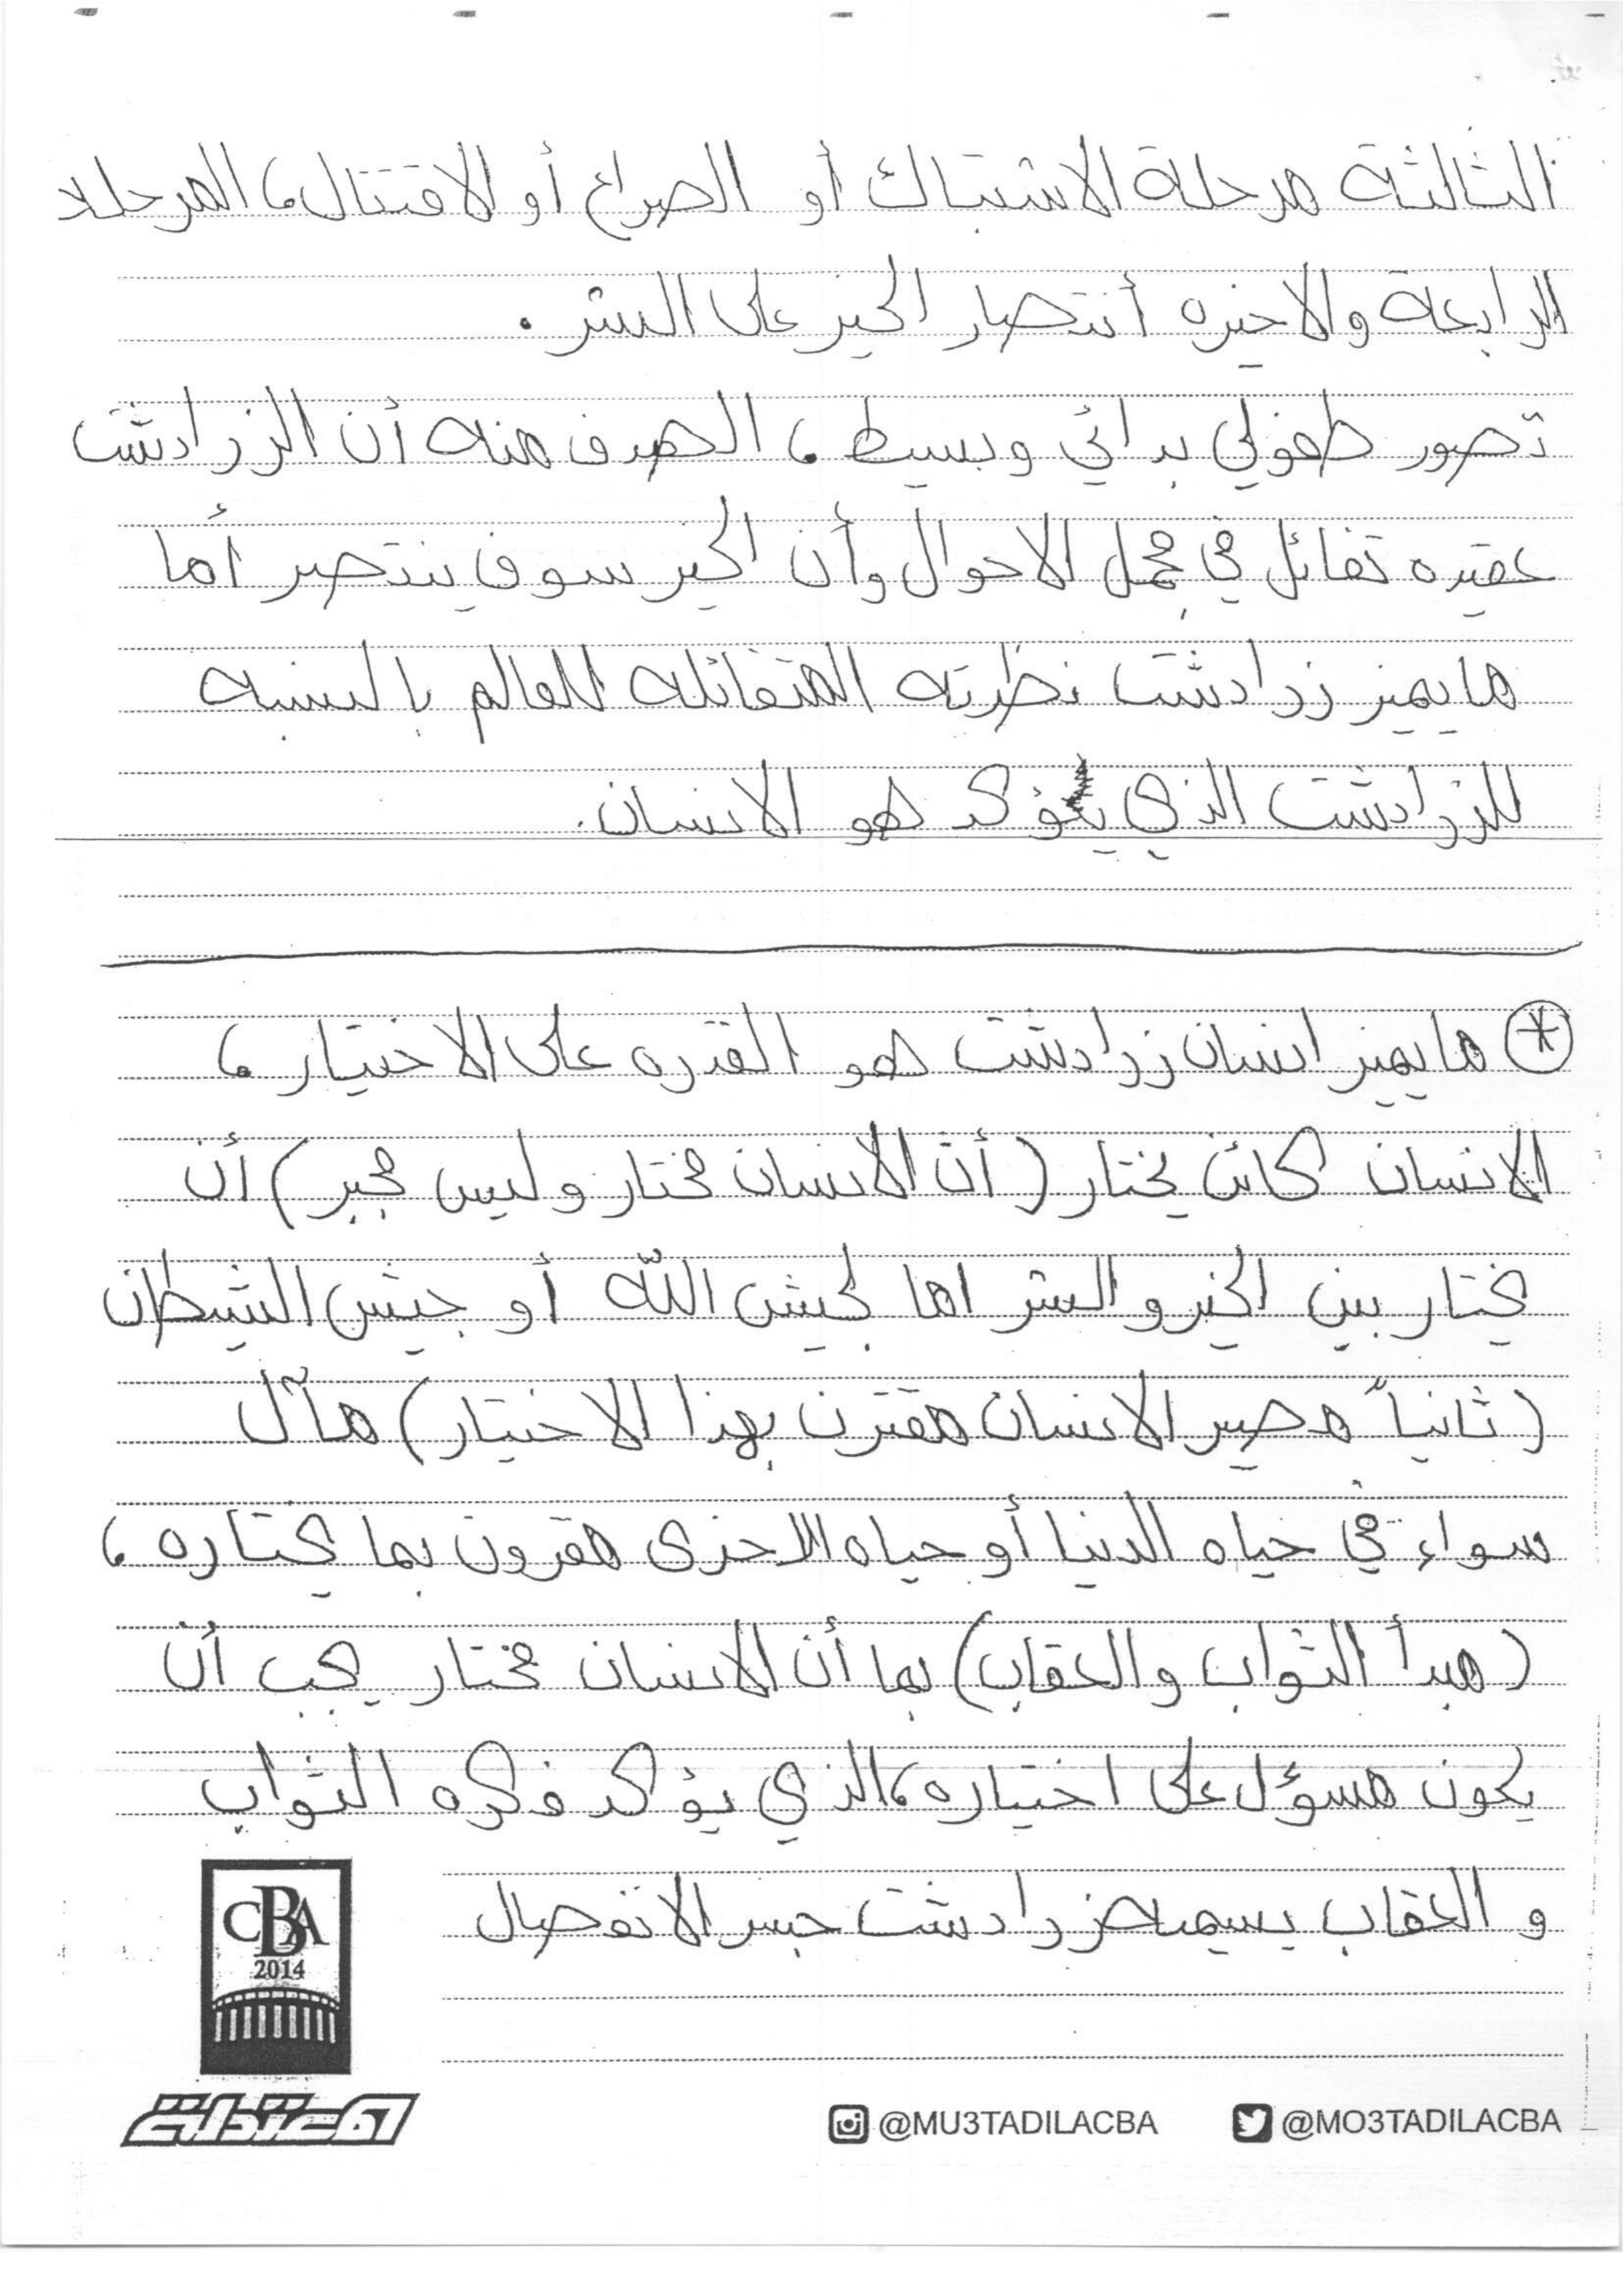 الثالثة مرحلة الاشتباك أو الصراع أو الاقتتال، المرحلة
الرابعة والاخيره أنتصار الخير على الشر.
تصور طفولي بدائي وبسيط، الهدف منه أن الزرادشت
عقيده تفائل في مجمل الاحوال وأن الخير سوف ينتصر أما
ما يميز زرادشت نظرته المتفائله للعالم بالنسبه
للزرادشت الذي يؤكد هو الانسان.
* ما يميز انسان زرادشت هو القدره على الاختيار،
الانسان كائن يختار (أن الانسان مختار وليس مجبر) أن
يختار بين الخير والشر اما لجيش الله أو جيش الشيطان
(ثانياً مصير الانسان مقترن بهذا الاختيار) مآل
سواء في حياه الدنيا أو حياه الاخرى مقرون بما يختاره،
(مبدأ الثواب والعقاب) بما أن الانسان مختار يجب أن
يكون مسؤل على اختياره، الذي يؤكد فكره الثواب
و العقاب يسميه زرادشت جسر الانفصال
CBA
2014
المعتدلة
@MU3TADILACBA @MO3TADILACBA